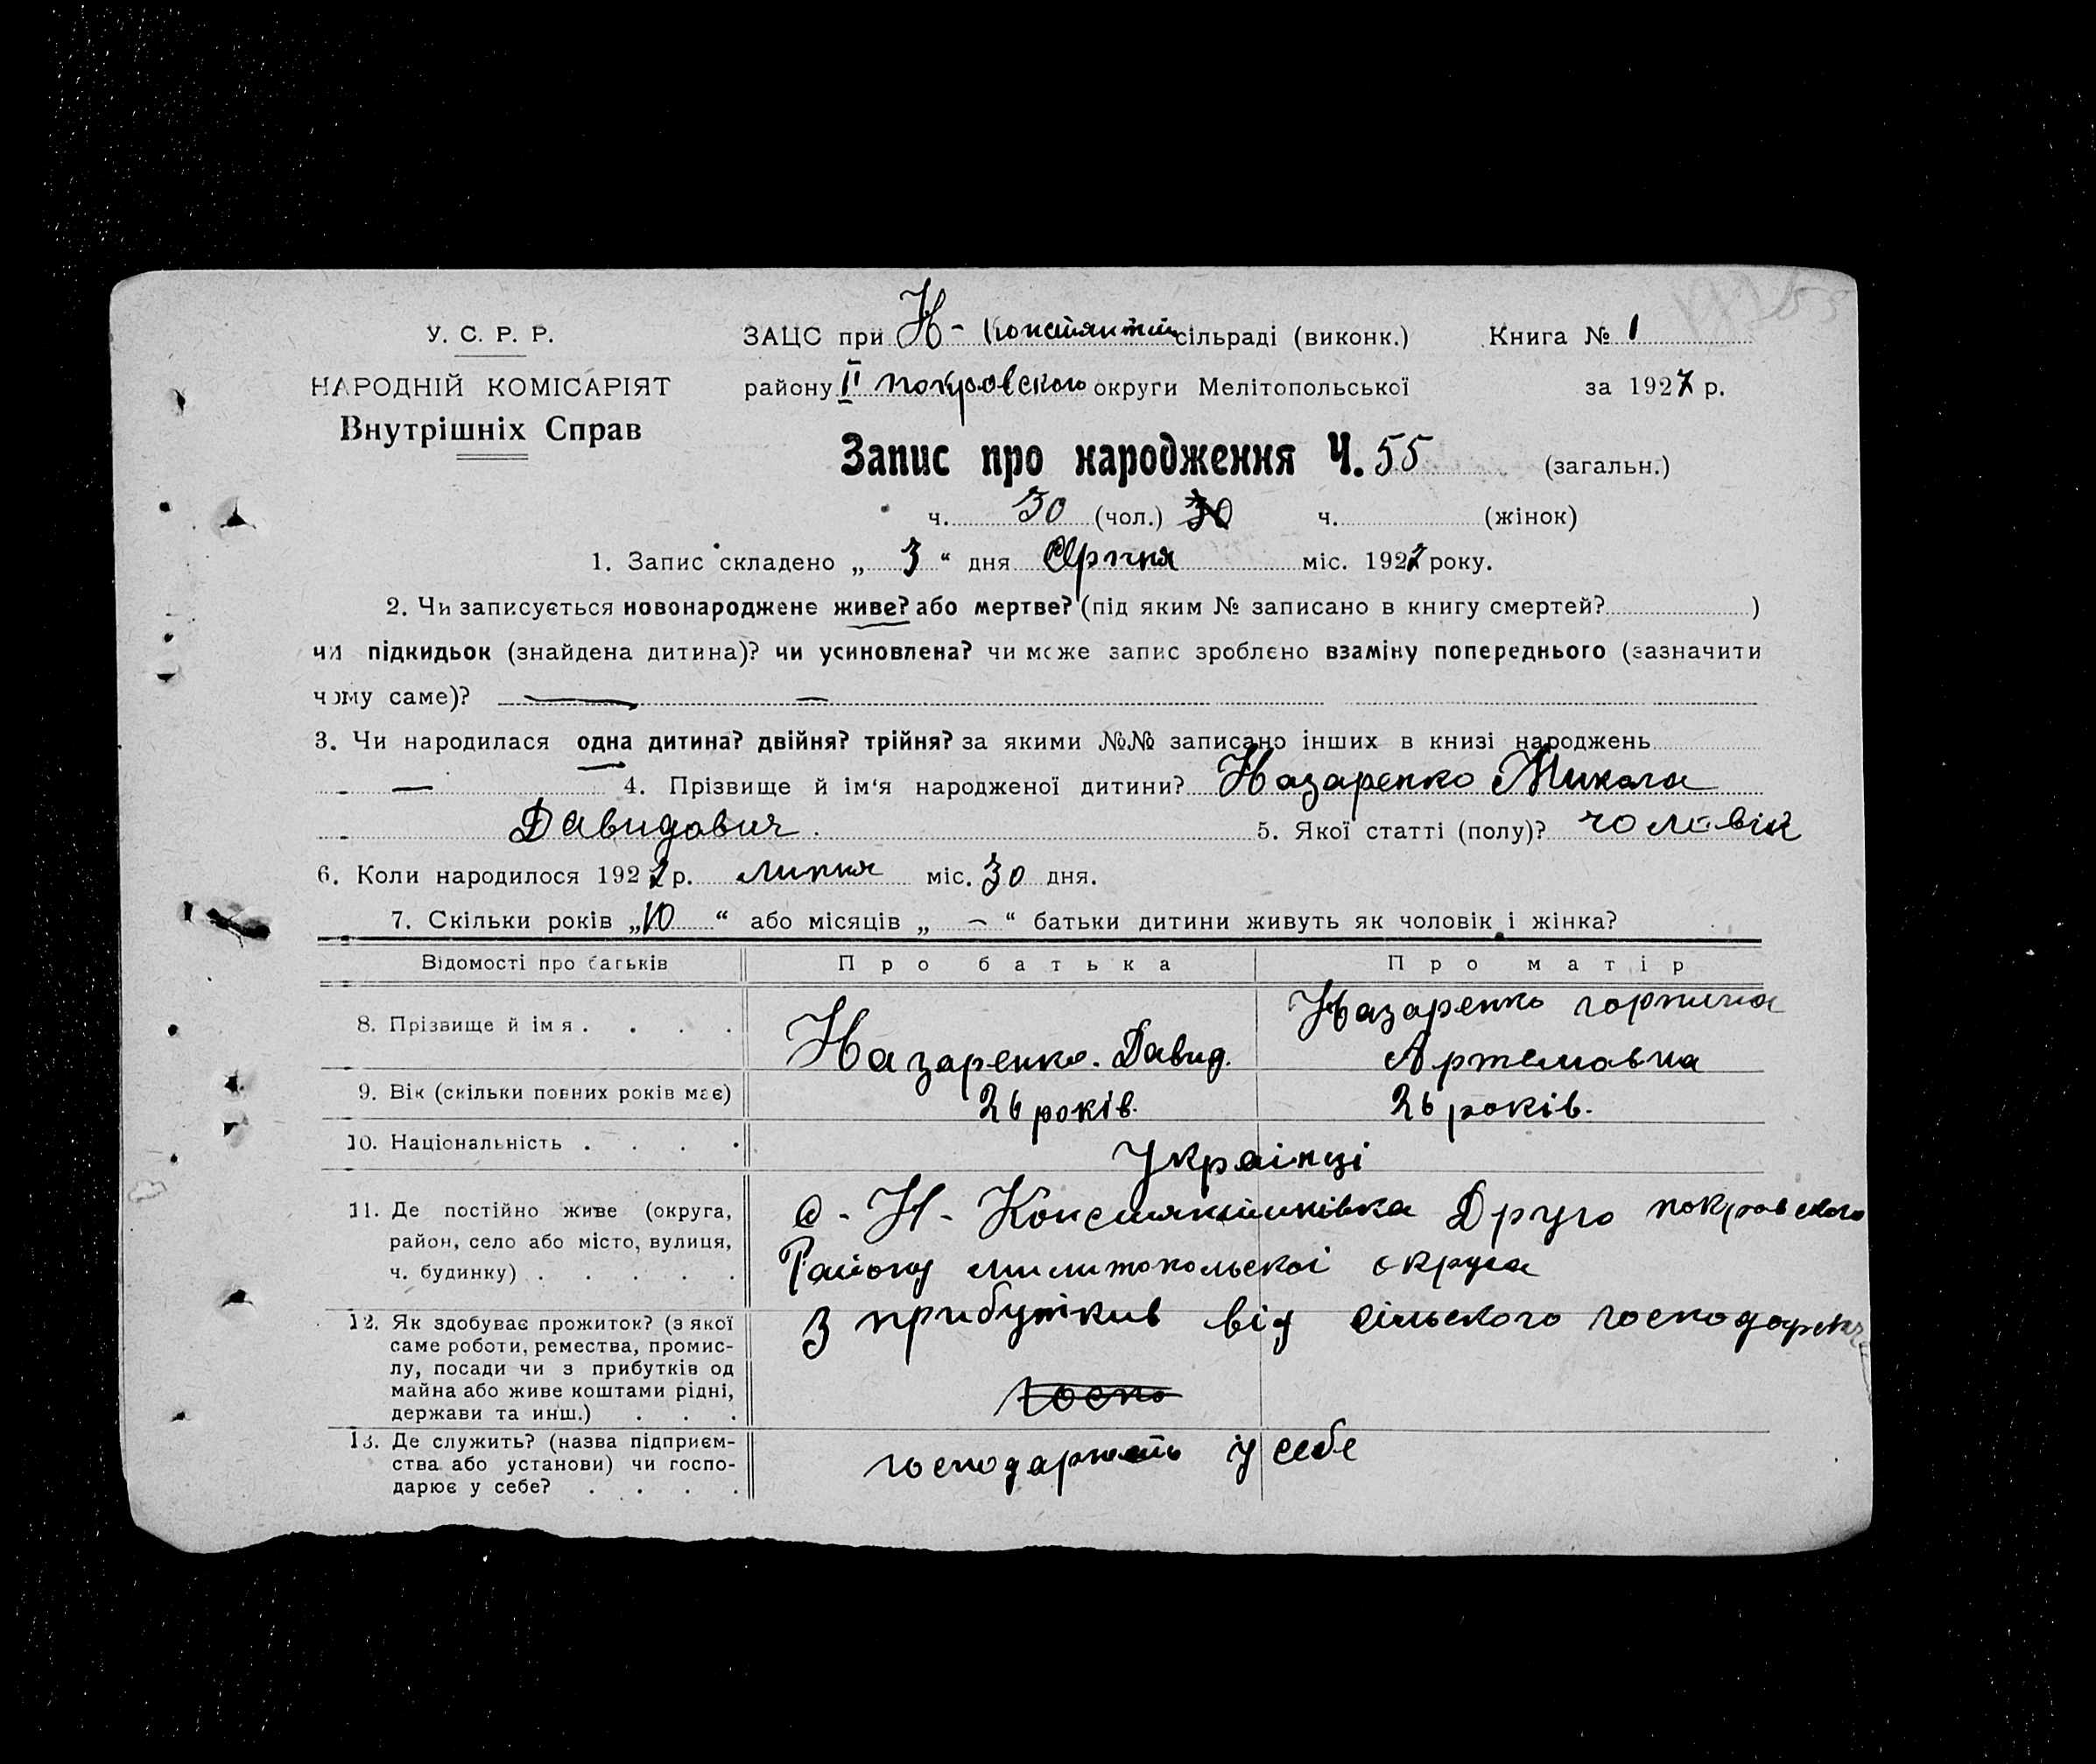 У. С. Р. Р.
НАРОДНІЙ КОМІСАРІЯТ
Внутрішніх Справ
ЗАЦС при Н- Констянтин сільраді (виконк.) Книга № 1
району ІІ покровского округи Мелітопольської за 1927 р.
Запис про народження Ч. 55 (загальн.)
ч. 30 (чол.) 30 ч. (жінок)
1. Запис складено „ 3 “ дня Серпня міс. 1927 року.
2. Чи записується новонароджене живе? або мертве? (під яким № записано в книгу смертей? )
чи підкидьок (знайдена дитина)? чи усиновлена? чи може запис зроблєно взаміну попереднього (зазначити
чому саме)? — –
3. Чи народилася одна дитина? двійня? трійня? за якими №№ записано інших в книзі народжень
— 4. Прізвище й ім‘я народженої дитини? Назаренко Микола
Давидович. 5. Якої статті (полу)? чоловік
6. Коли народилося 1927 р. липня міс. 30 дня.
7. Скільки років „10 “ або місяців „ – “ батьки дитини живуть як чоловік і жінка?
Відомості про батьків Про батька Про матір
8. Прізвище й ім я . . . . Назаренко. Давид. Назаренко горпина
Артемовна
9. Вік (скільки повних років має) 26 років. 26 років.
10. Національність . . . . Українці
11. Де постійно живе (округа,
район, село або місто, вулиця,
ч. будинку) . . . . .
с. Н- Констянтинівка Друго покровского
Району милитопольскоі округа
12. Як здобуває прожиток? (з якої
саме роботи, ремества, промис-
лу, посади чи з прибутків од
майна або живе коштами рідні,
держави та инш.) . . .
З прибутків від сільского господарства
госпо
13. Де служить? (назва підприєм-
ства або установи) чи госпо-
дарює у себе? . . . .
господарюють у себе